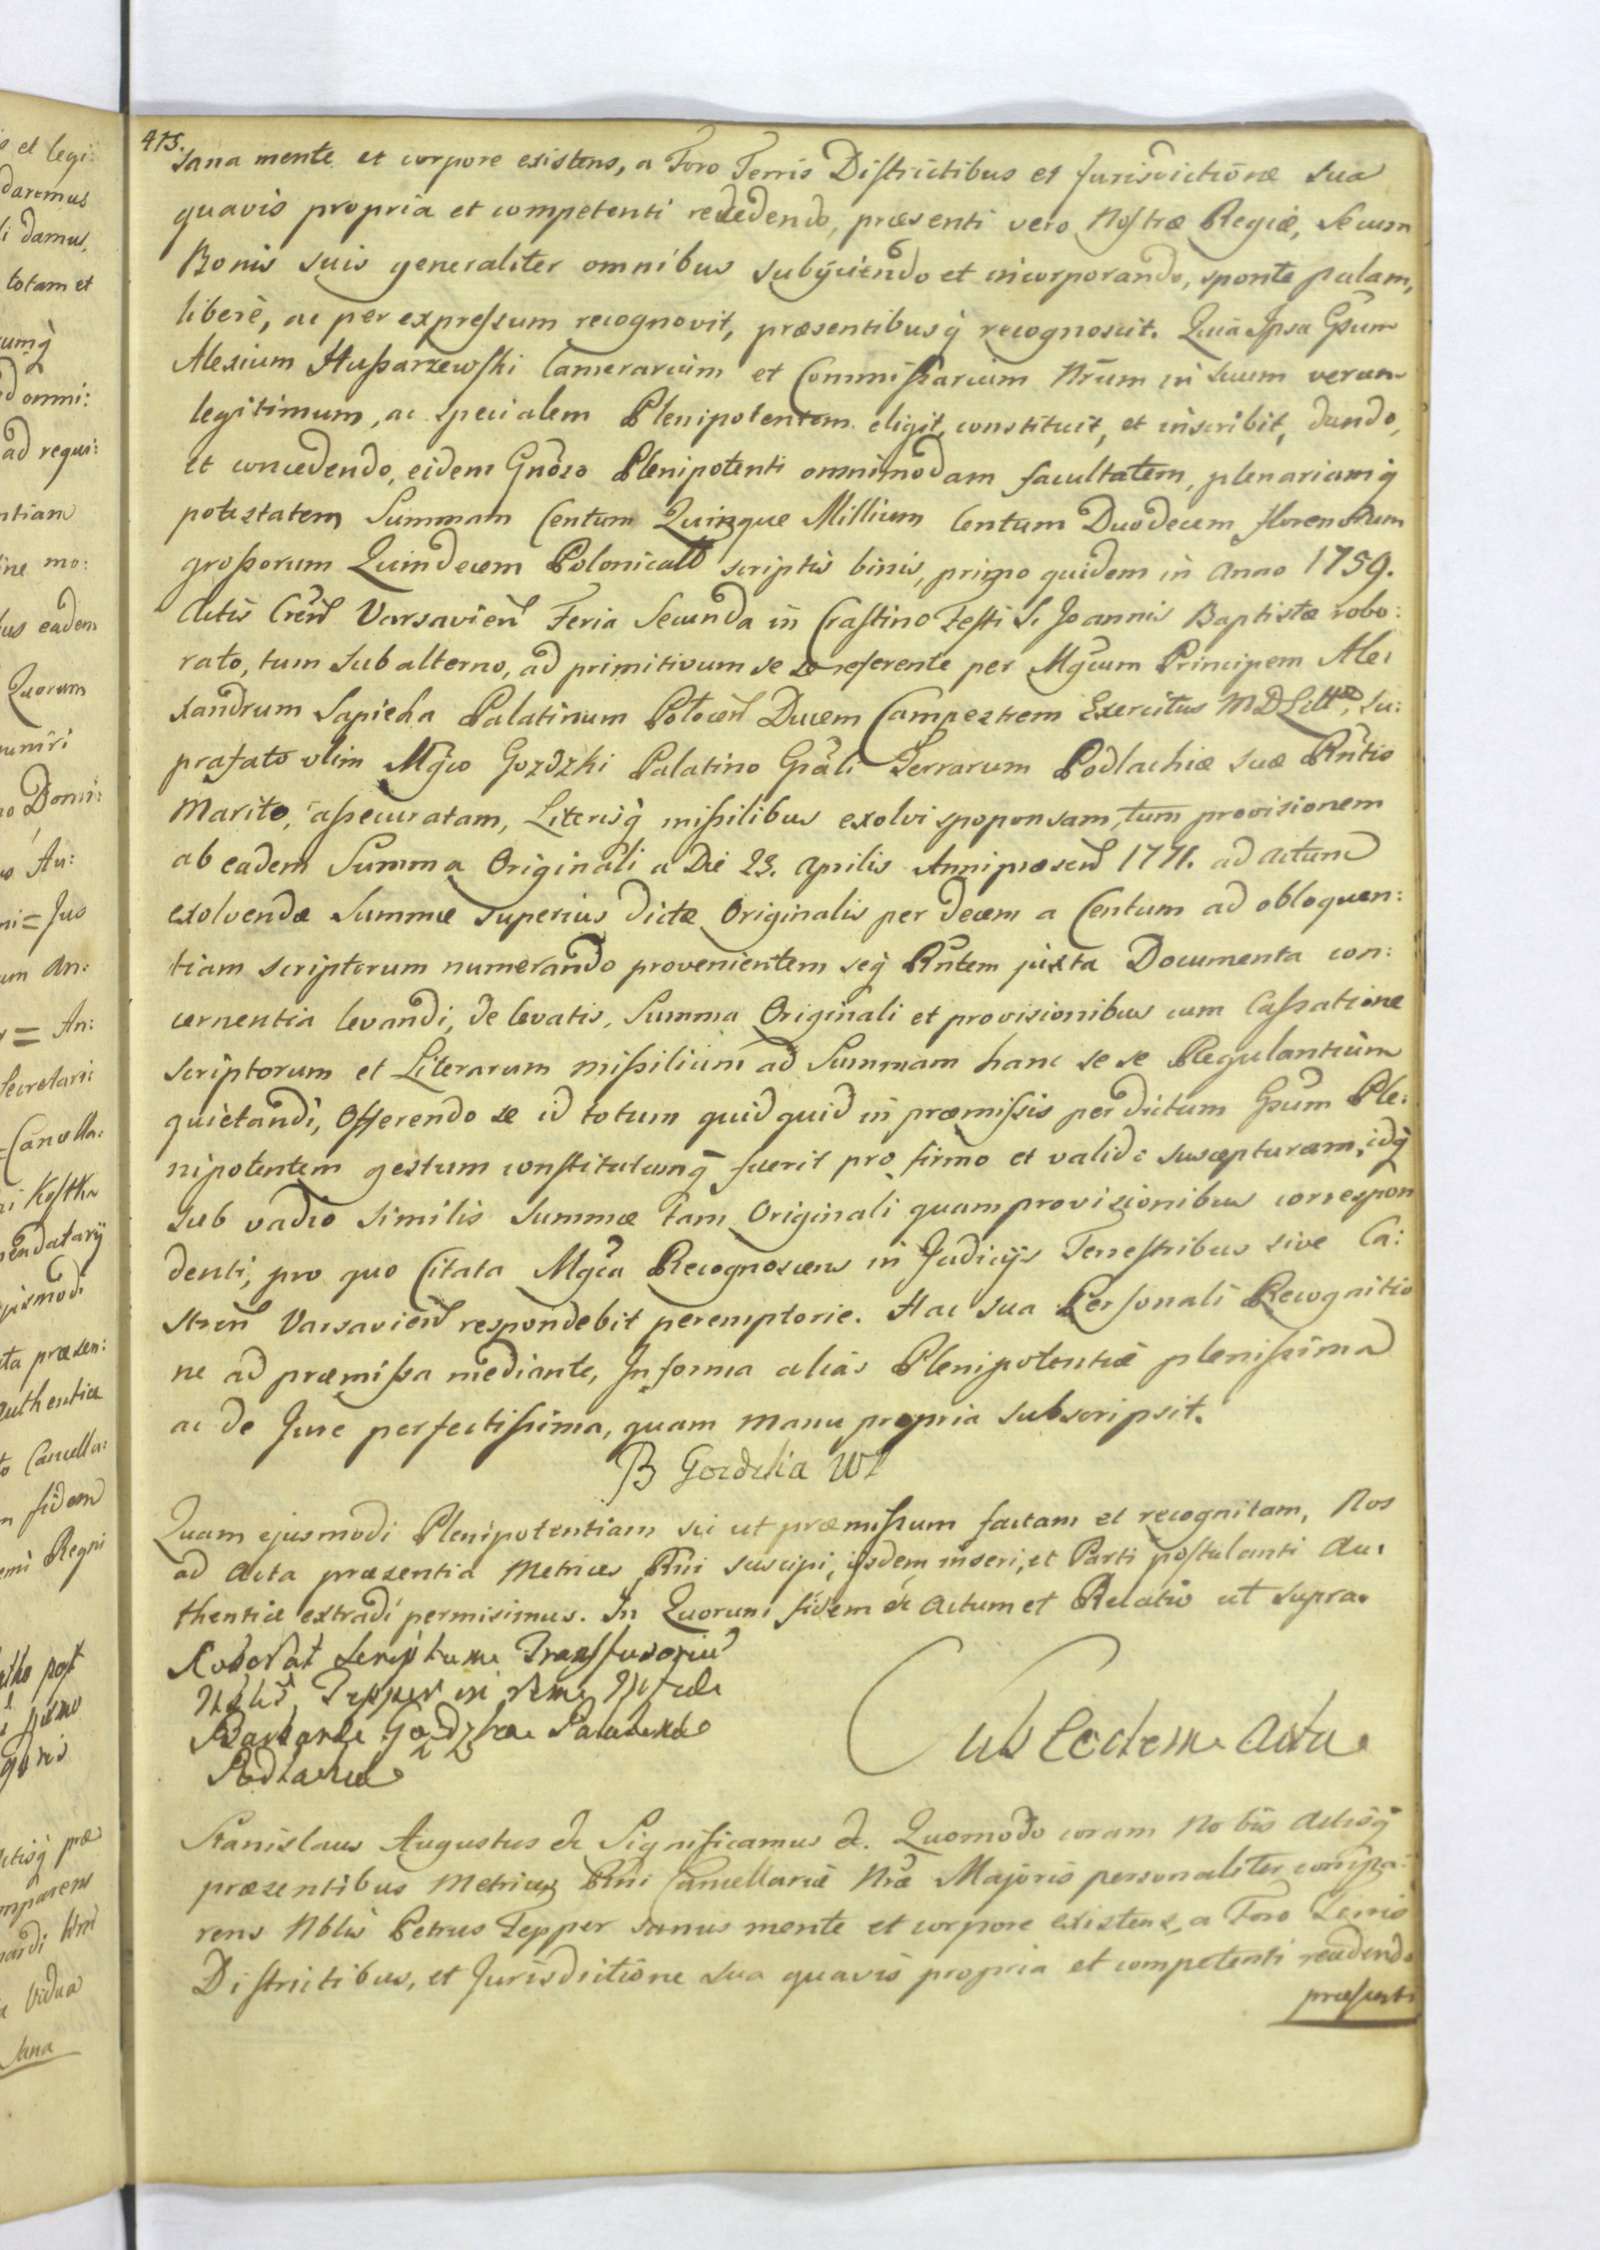 475.
sana mente et corpore existens, a Foro Terris Districtibus et Jurisdictione sua
quavis propria et competenti recedendo, præsenti vero Nostræ Regiæ, se cum
Bonis suis generaliter omnibus subijciendo et incorporando, sponte palam,
liberè, ac per expressum recognovit, præsentibusq̀ recognoscit. Quia Ipsa Gsum
Alexium Hussarzewski Camerarium et Commissarium Nrum in suum verum
legitimum, ac specialem Plenipotentem eligit, constituit, et inscribit, dando,
et concedendo, eidem Gnoso Plenipotenti omnimodam facultatem, plenariamq̀
potestatem Summam Centum Quinque Millium Centum Duodecem florenorum
grossorum Quindecem Polonicall scriptis binis, primo quidem in Anno 1759.
Actis Cren Varsavien Feria Secunda in Crastino Festi S. Joannis Baptistæ robo:
rato, tum subalterno, ad primitivum se se referente per Mgcum Principem Ale:
xandrum Sapieha Palatinum Polocen Ducem Campestrem Exercitus M D Litt. su:
prafato olim Mgco Gozdzki Palatino Gnali Terrarum Podlachiæ suæ Rntis
Marito, assecuratam, Literisq̀ missilibus exolvi spoponsam, tum provisionem
ab eadem Summa Originali a Die 23. Aprilis Anni præsen 1771. ad actum
exolvendæ Summæ superius dictæ Originalis per decem a Centum ad obloquen:
tiam scriptorum numerando provenientem seq̀ Rntem juxta Documenta con:
cernentia levandi, de levatis, Summa Originali et provisionibus cum Cassatione
scriptorum et Literarum missilium ad Summam hanc se se Regulantium
quietandi, Offerendo se id totum quidquid in præmissis per dictum Gsum Ple:
nipotentem gestum constitutumq̀ fuerit pro firmo et valido suscepturam, idq̀
sub vadio similis summæ tam Originali quam provisionibus correspon
denti, pro quo Citata Mgca Recognoscens in Judicijs Terrestribus sive Ca:
stren Varsavien respondebit peremptorie. Hac sua Personali Recognitio
ne ad præmissa mediante, In forma alias Plenipotentiæ plenissima
ac de Jure perfectissima, quam manu propria subscripsit.
B Gozdzka W
Quam ejusmodi Plenipotentiam sic ut præmissum factam et recognitam, Nos
ad Acta præsentia Metrices Rni suscipi, ijsdem inseri, et Parti postulanti Au:
thentice extradi permisimus. In Quorum fidem &c Actum et Relatio ut supra.
Roborat Scriptum Transfusorium
Nblis Tepper in rem Mgficæ
Barbaræ Gozdzka Palatinæ
Podlachiæ
Sub Eodem Actu
Stanislaus Augustus &c Significamus &c. Quomodo coram Nobis Actisq̀
præsentibus Metrices Rni Cancellariæ Nræ Majoris personaliter compa:
rens Nblis Petrus Tepper sanus mente et corpore existens, a Foro Terris
Districtibus, et Jurisdictione sua quavis propria et competenti recedendo
præsenti